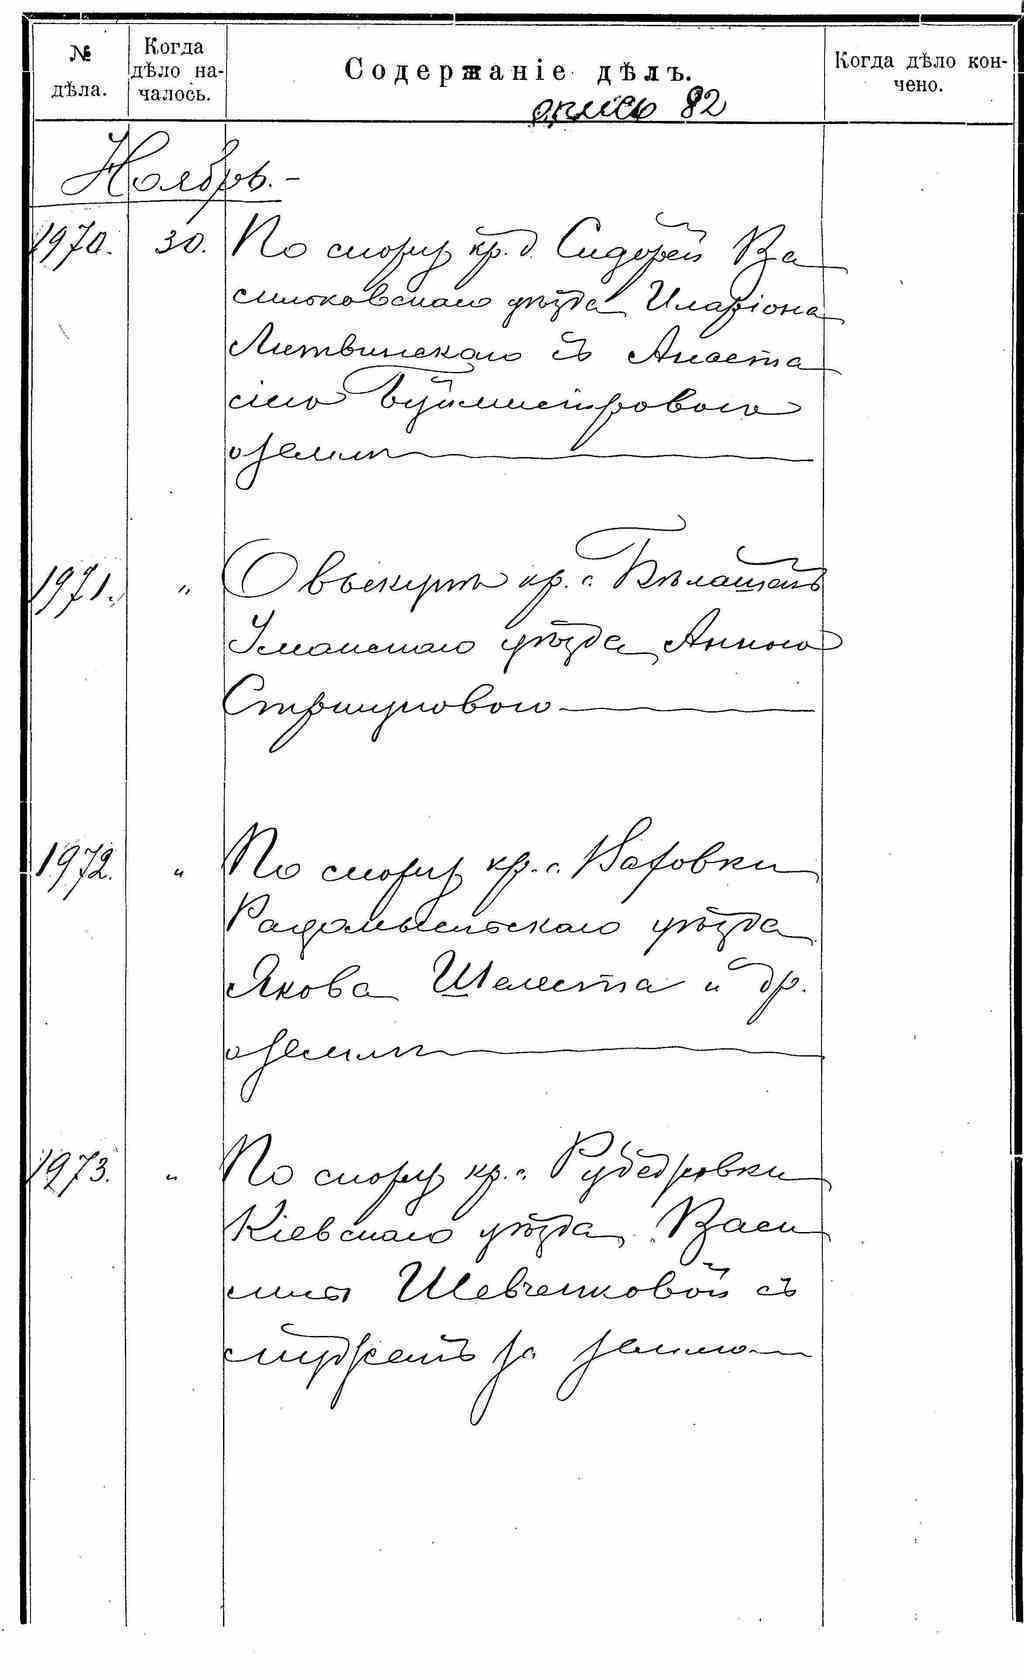 № дѣла.
Когда дѣло на-
чалось.
Содержаніе дѣлъ.
Когда дѣло кон-
чено.
опись 82
Ноябрь.-
1970. 30. По спору кр. д. Сидорей Ва
сильковскаго уѣзда Иларіона
Литвинскаго съ Анаста
сіею Буймистровою
о земли
1971. " О выкупѣ кр. с.
Уманскаго уѣзда Анною
Стрижуковою
1972. " По спору кр. с.
Радомысльскаго уѣзда
Якова Шелеста и др.
о земли
1973. " По спору кр. с.
Кіевскаго уѣзда Васи
лисы Шевченковой съ
мужемъ за землю